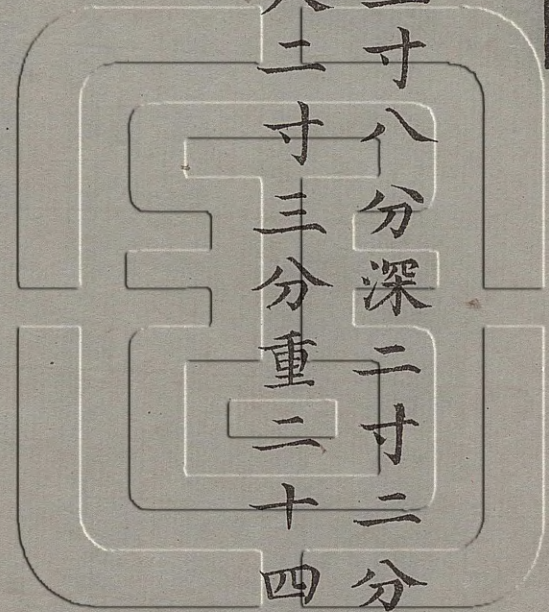 寸八分深二寸二分
二寸三分重二十四